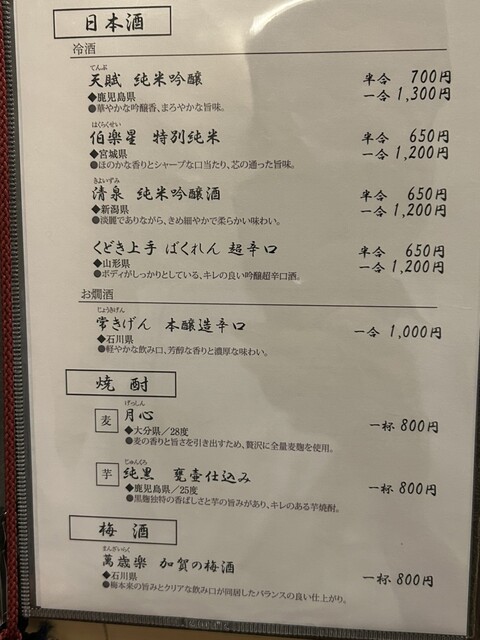 日本酒
冷酒
てんぶ
天賦 純米吟醸 半合 700円
◆鹿児島県 一合 1,300円
●華やかな吟醸香、まろやかな旨味。
はくらくせい
伯楽星 特別純米 半合 650円
◆宮城県 一合 1,200円
●ほのかな香りとシャープな口当たり、芯の通った旨味。
きよいずみ
清泉 純米吟醸酒 半合 650円
◆新潟県 一合 1,200円
●淡麗でありながら、きめ細やかで柔らかい味わい。
くどき上手 ばくれん 超辛口 半合 650円
◆山形県 一合 1,200円
●ボディがしっかりとしている、キレの良い吟醸超辛口酒。
お燗酒
じょうきげん
常きげん 本醸造辛口 一合 1,000円
◆石川県
●軽やかな飲み口、芳醇な香りと濃厚な味わい。
焼酎
げっしん
麦 月心 一杯 800円
◆大分県／28度
●麦の香りと旨さを引き出すため、贅沢に全量麦麹を使用。
じゅんくろ
芋 純黒 甕壷仕込み 一杯 800円
◆鹿児島県／25度
●黒麹独特の香ばしさと芋の旨みがあり、キレのある芋焼酎。
梅酒
まんざいらく
萬歳楽 加賀の梅酒 一杯 800円
◆石川県
●梅本来の旨みとクリアな飲み口が同居したバランスの良い仕上がり。